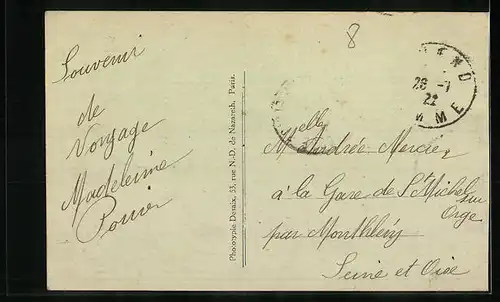 8
Souvenir
de
Voyage
Madeleine
Phototypie Desaix, 53, rue N.-D. de Nazareth, Paris.
END
26 -7
22
MME
Melle Andrée Mercier
à la Gare de St Michel
sur
Orge
par Monthléry
Seine et Oise